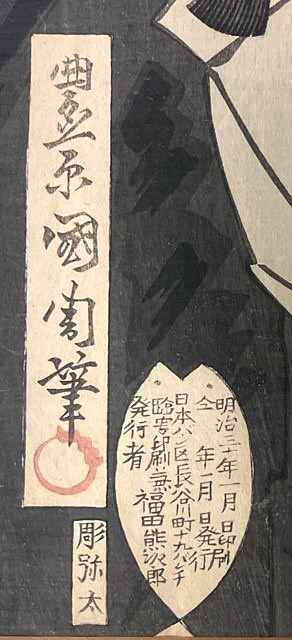 豊原國周筆
彫弥太
明治三十年一月 日印刷
仝 年 月 日発行
日本バシ区長谷川町十九バンチ
臨写印刷兼
発行者 福田熊次郎